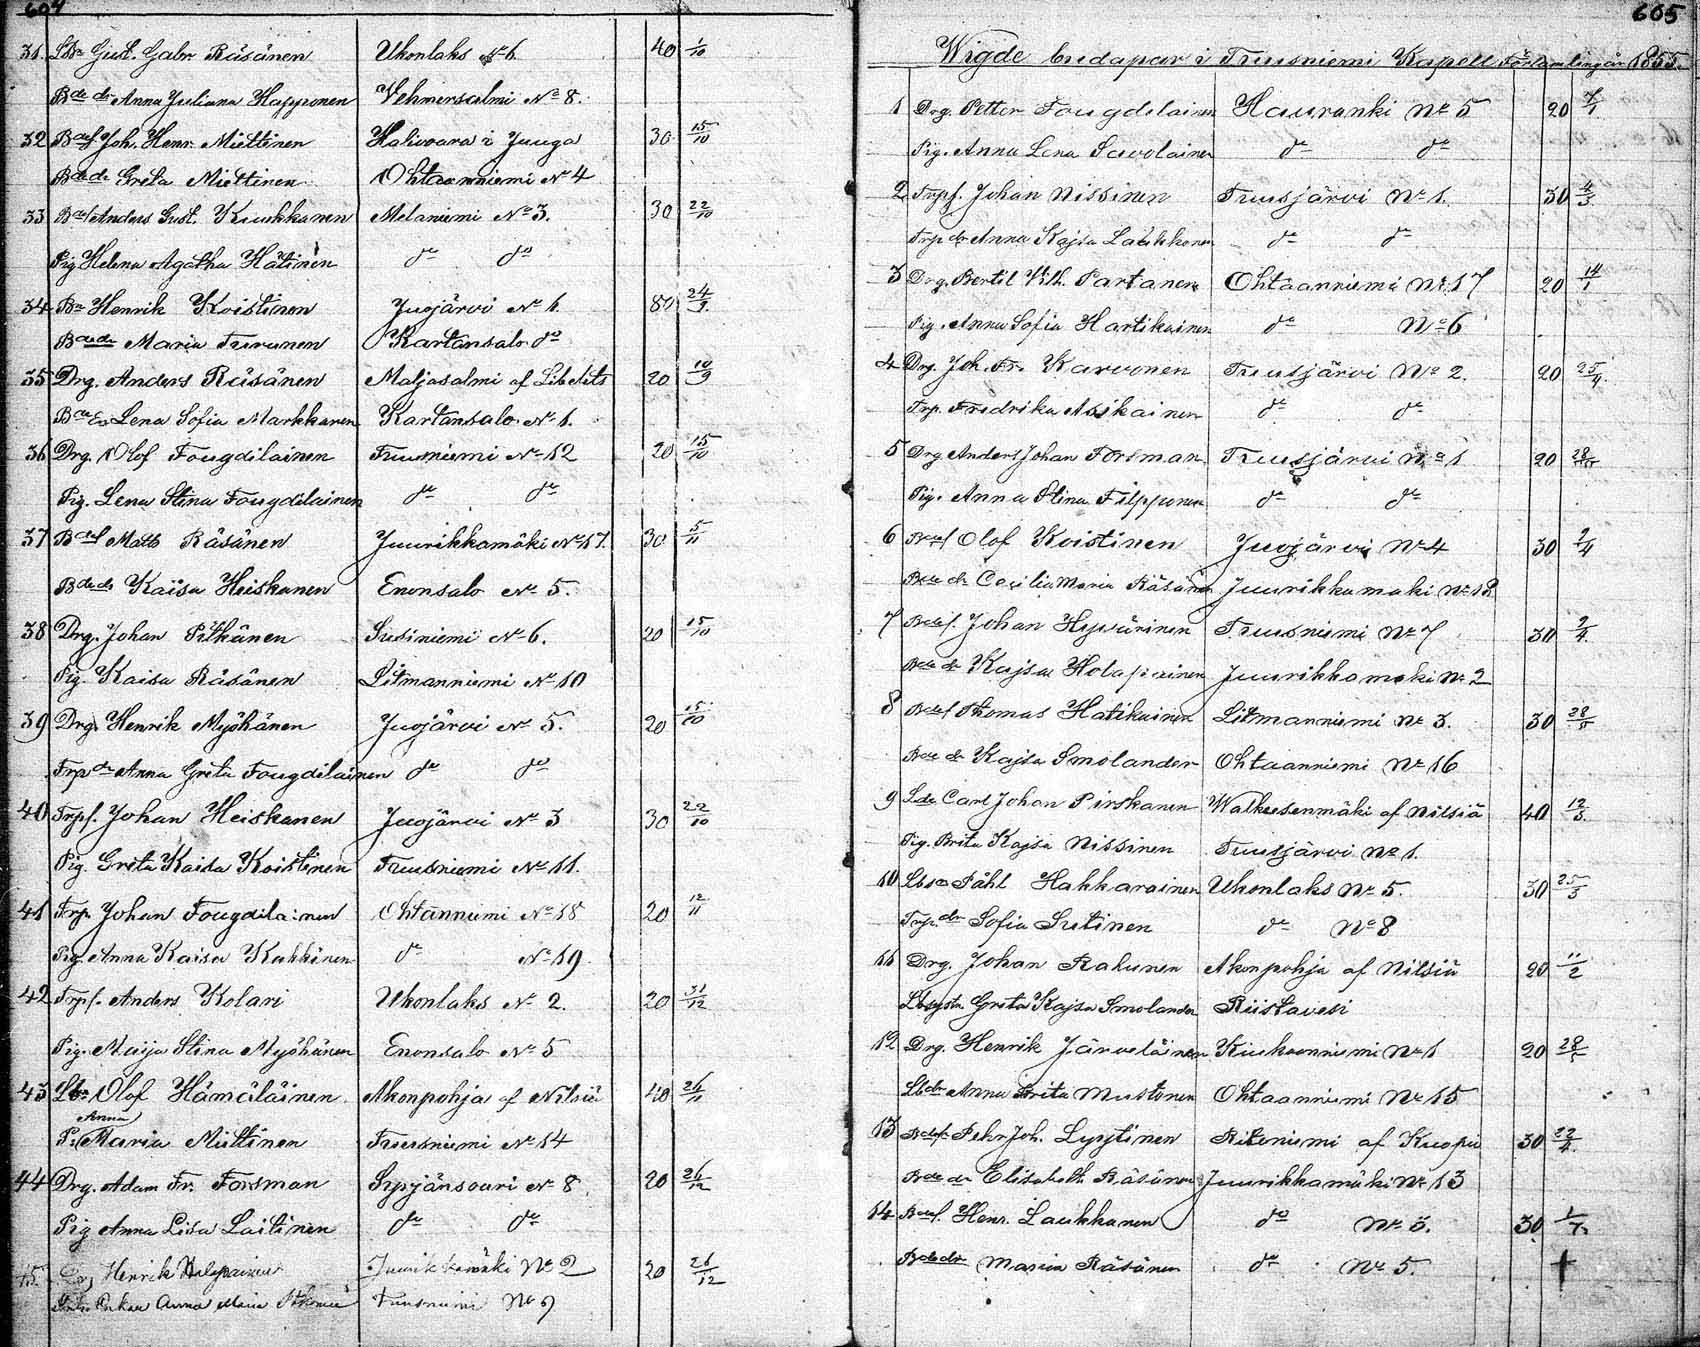 604
31 Lbr Gust. Gabr. Räsänen Ukonlaks No 6. 40 1/10
Bde dr Anna Juliana Happonen Vehmersalmi No 8.
32 Bdes Joh. Henr. Miettinen Halivaara i Juuga 30 15/10
Bde dr Greta Miettinen Ohtaanniemi No 4
33 Bds Anders Gust. Kuukkanen Melaniemi No 3. 30 22/10
Pig Helena Agatha Hätinen do do
34 Bn Henrik Koistinen Juojärvi No 1. 80 24/9.
Bde dr Maria Turunen Kartansalo do
35 Drg. Anders Räsänen Maljasalmi af Libelits 20 10/9
Bde Lena Sofia Markkanen Kartansalo No 1.
36 Drg. Olof Fougdilainen Tuusniemi No 12 20 15/10
Pig. Lena Stina Fougdilainen do do
37 Bdes Matts Räsänen Juurikkamäki No 17. 30 5/11
Bde dr Kaisa Heiskanen Enonsalo No 5.
38 Drg. Johan Pitkänen Susiniemi No 6. 20 15/10
Pig. Kaisa Räsänen Litmanniemi No 10
39 Drg. Henrik Myöhänen Juojärvi No 5. 20 15/10
Trp dr Anna Greta Fougdilainen do do
40 Trpf. Johan Heiskanen Juojärvi No 3 30 22/10
Pig. Greta Kaisa Koistinen Tuusniemi No 11.
41 Trp. Johan Fougdilainen Ohtanniemi No 18 20 12/11
Pig. Anna Kaisa Kahkinen do No 19
42 Trpf. Anders Kolari Ukonlaks No 2. 20 31/12
Pig. Maija Stina Myöhänen Enonsalo No 5
43 Lbr Olof Hämäläinen Akonpohja af Nilsiä 40 26/11
P: Anna Maria Miettinen Tuusniemi No 14
44 Drg. Adam Fr. Forsman Syrjänsaari No 8 20 26/12
Pig Anna Lisa Laitinen do do
45. Drg Henrik Holopainen Juurikkamäki No 2 20 26/12
Enkan Anna Maria Tuusniemi No 9
605
Wigde brudapar i Tuusniemi Kapell Församling år 1855.
1 Drg. Petter Fougdilainen Hauranki No 5 20 7/1.
Pig. Anna Lena Savolainen do do
2 Trpf. Johan Nissinen Tuusjärvi No 1. 30 4/3
Trp dr Anna Kajsa Laukkonen do do
3 Drg. Bertil Vilh. Partanen Ohtaanniemi No 17 20 14/1
Pig. Anna Sofia Hartikainen do No 6
4 Drg. Joh. Fr. Karvonen Tuusjärvi No 2. 20 25/4.
Trp. Fredrika Asikainen do do
5 Drg Anders Johan Forsman Tuusjärvi No 1 20 28/
Pig. Anna Stina Filpponen do do
6 Bdes Olof Koistinen Juojärvi No 4 30 9/4
Bde dr Cecilia Maria Räsänen Juurikkamäki No 12
7 Bdes. Johan Hyvärinen Tuusniemi No 7 30 9/4.
Bde dr Kajsa Holapainen Juurikkamäki No 2
8 Bdes Thomas Hatikainen Litmanniemi No 3. 30 28/5
Bde dr Kajsa Smolander Ohtaanniemi No 16
9 Carl Johan Pirskanen Walkeesenmäki af Nilsiä 40 12/3.
Pig. Brita Kajsa Nissinen Tuusjärvi No 1.
10 Påhl Hakkarainen Ukonlaks No 5. 30 25/3
Trp. dr Sofia Sutinen do No 8
11 Drg. Johan Rahunen Akonpohja af Nilsiä 20 11/2
Greta Kajsa Smolander Riistavesi
12 Drg. Henrik Järveläinen Kiukoonniemi No 1 20 28/
Lbdr Anna Brita Mustonen Ohtaanniemi No 15
13 Bdes. Pehr Joh. Lyytinen Ritoniemi af Kuopio 30 22/4.
Bde dr Elisabeth Räsänen Juurikkamäki No 13
14 Bdes. Henr. Laukkanen do No 5. 30 1/7.
Bde dr Maria Räsänen do No 5.